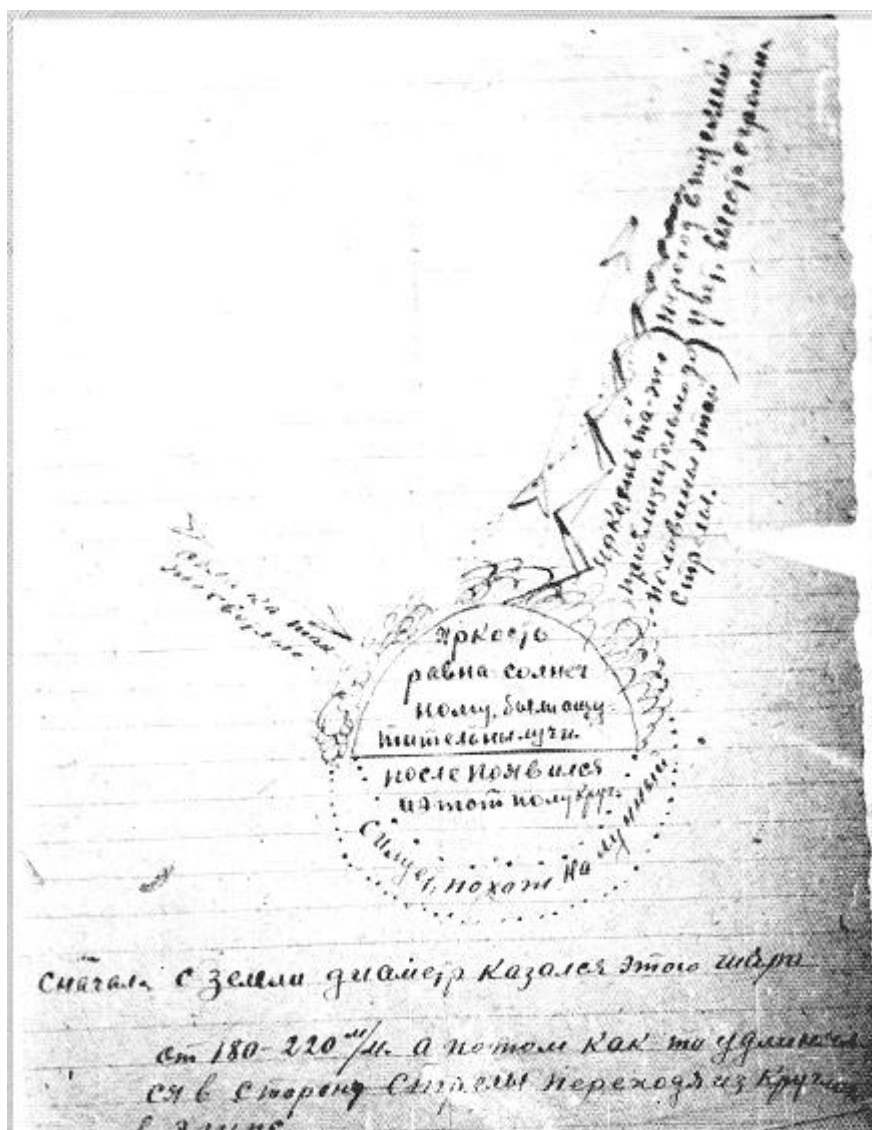 переход в тусклый
цвет. высота огромн.
яркость та-это
приблизительно до
половины этой
стрелы.
не так
светлые.
Яркость
равна солнеч
ному, были ощу-
тительны лучи.
после появился
и этот полукруг.
Силует, похож на лунный
Сначала с Земли диаметр казался этого шара
от 180-220 м/м. а потом как то удлинял
ся в сторону Стрелы переходя из круглой
в